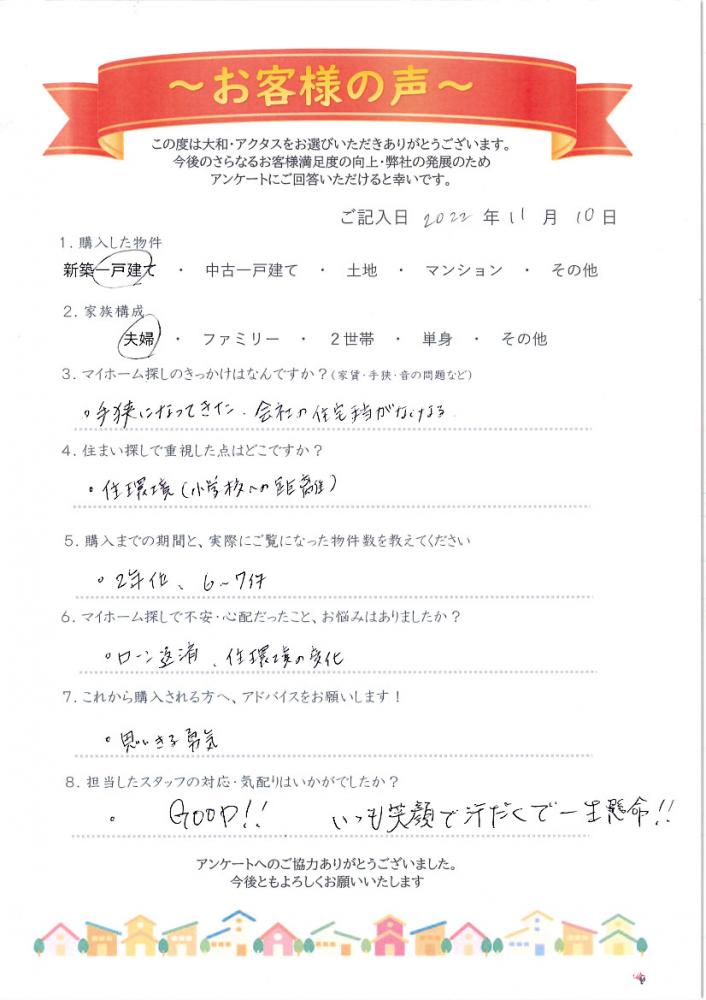 ～お客様の声～
この度は大和・アクタスをお選びいただきありがとうございます。
今後のさらなるお客様満足度の向上・弊社の発展のため
アンケートにご回答いただけると幸いです。
ご記入日 2022 年 11 月 10 日
1. 購入した物件
新築一戸建て ・ 中古一戸建て ・ 土地 ・ マンション ・ その他
2. 家族構成
夫婦 ・ ファミリー ・ 2世帯 ・ 単身 ・ その他
3. マイホーム探しのきっかけはなんですか？(家賃・手狭・音の問題など)
・手狭になってきた、会社の住宅手当がなくなる
4. 住まい探しで重視した点はどこですか？
・住環境(小学校への距離)
5. 購入までの期間と、実際にご覧になった物件数を教えてください
・2年位、6～7件
6. マイホーム探しで不安・心配だったこと、お悩みはありましたか？
・ローン返済、住環境の変化
7. これから購入される方へ、アドバイスをお願いします！
・思いきる勇気
8. 担当したスタッフの対応・気配りはいかがでしたか？
・ GOOD!! いつも笑顔で汗だくで一生懸命!!
アンケートへのご協力ありがとうございました。
今後ともよろしくお願いいたします